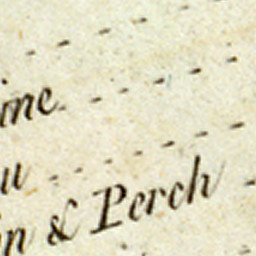 ine
u
in & Perch